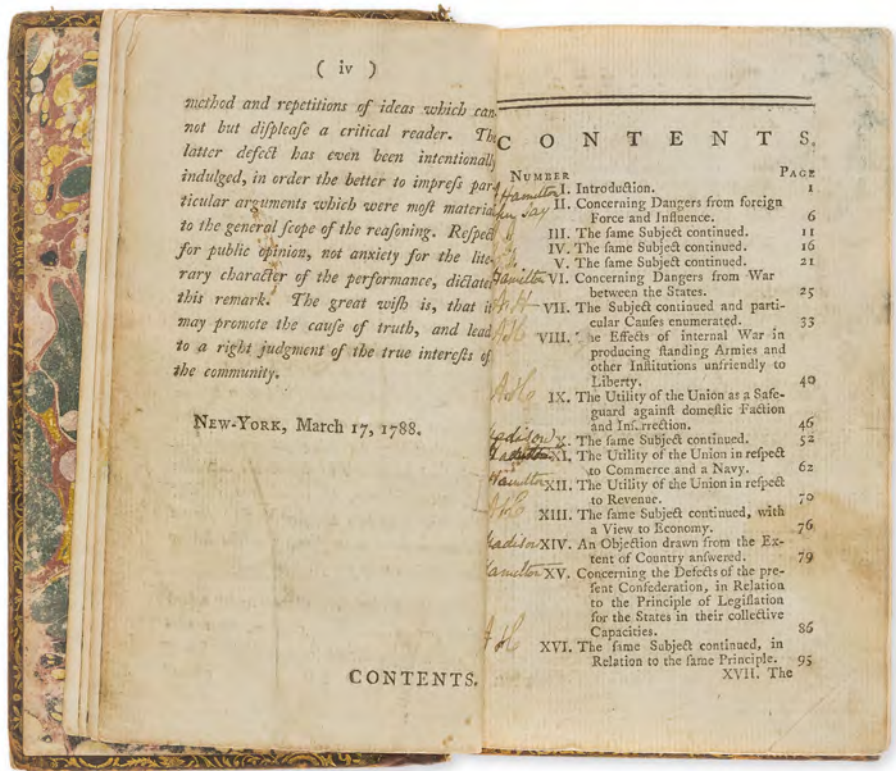 ( iv )
method and repetitions of ideas which can-
not but diſpleaſe a critical reader. The
latter defect has even been intentionally
indulged, in order the better to impreſs par-
ticular arguments which were moſt material
to the general ſcope of the reaſoning. Reſpect
for public opinion, not anxiety for the lite-
rary character of the performance, dictated
this remark. The great wiſh is, that it
may promote the cauſe of truth, and lead
to a right judgment of the true intereſts of
the community.
NEW-YORK, March 17, 1788.
CONTENTS.
CONTENTS.
NUMBER PAGE
Hamilton I. Introduction. 1
Jay II. Concerning Dangers from foreign
Force and Influence. 6
III. The ſame Subject continued. 11
IV. The ſame Subject continued. 16
V. The ſame Subject continued. 21
Hamilton VI. Concerning Dangers from War
between the States. 25
A H VII. The Subject continued and parti-
cular Cauſes enumerated. 33
A H VIII. he Effects of internal War in
producing ſtanding Armies and
other Inſtitutions unfriendly to
Liberty. 40
A H IX. The Utility of the Union as a Safe-
guard againſt domeſtic Faction
and Inſ.rrection. 46
Madison X. The ſame Subject continued. 52
XI. The Utility of the Union in reſpect
to Commerce and a Navy. 62
Hamilton XII. The Utility of the Union in reſpect
to Revenue. 70
A H XIII. The ſame Subject continued, with
a View to Economy. 76
Madison XIV. An Objection drawn from the Ex-
tent of Country anſwered. 79
Hamilton XV. Concerning the Defects of the pre-
ſent Confederation, in Relation
to the Principle of Legiſlation
for the States in their collective
Capacities. 86
A H XVI. The ſame Subject continued, in
Relation to the ſame Principle. 95
XVII. The